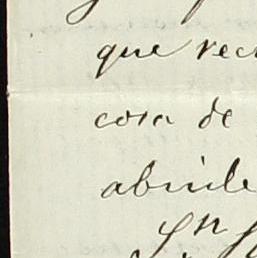 que rec
cosa de
abrile
Sn